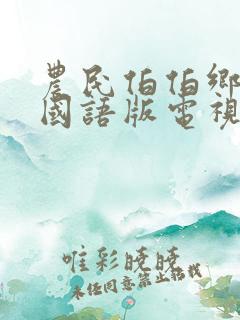 農民伯伯鄉
國語版電視
唯彩曉曉
未经同意禁止搭载